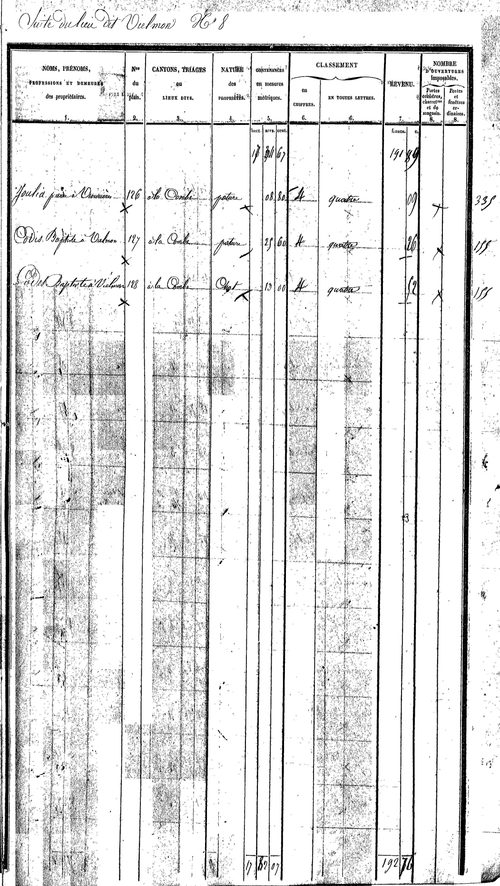 Suite du lieu dit Vielmon N° 8
NOMS, PRÉNOMS, PROFESSIONS ET DEMEURES des propriétaires. 1.
Nos du plan. 2.
CANTONS, TRIAGES OU LIEUX DITS. 3.
NATURE des PROPRIÉTÉS. 4.
CONTENANCES en mesures métriques. 5.
CLASSEMENT
en CHIFFRES. 6.
EN TOUTES LETTRES. 6.
REVENU. 7.
NOMBRE D'OUVERTURES imposables.
Portes cochères, charret.res et de magasin. 8.
Portes et fenêtres ordinaires. 8.
hect. ares. cent. francs. c.
17 34 67 191 89
père à 126 à la Combe pature 08 80 4 quatre 09 335
Baptiste à Vielmon 127 à la Combe pature 25 60 4 quatre 26 155
Baptiste à Vielmon 128 à la Combe 13 00 4 quatre 52 155
17 82 07 192 76